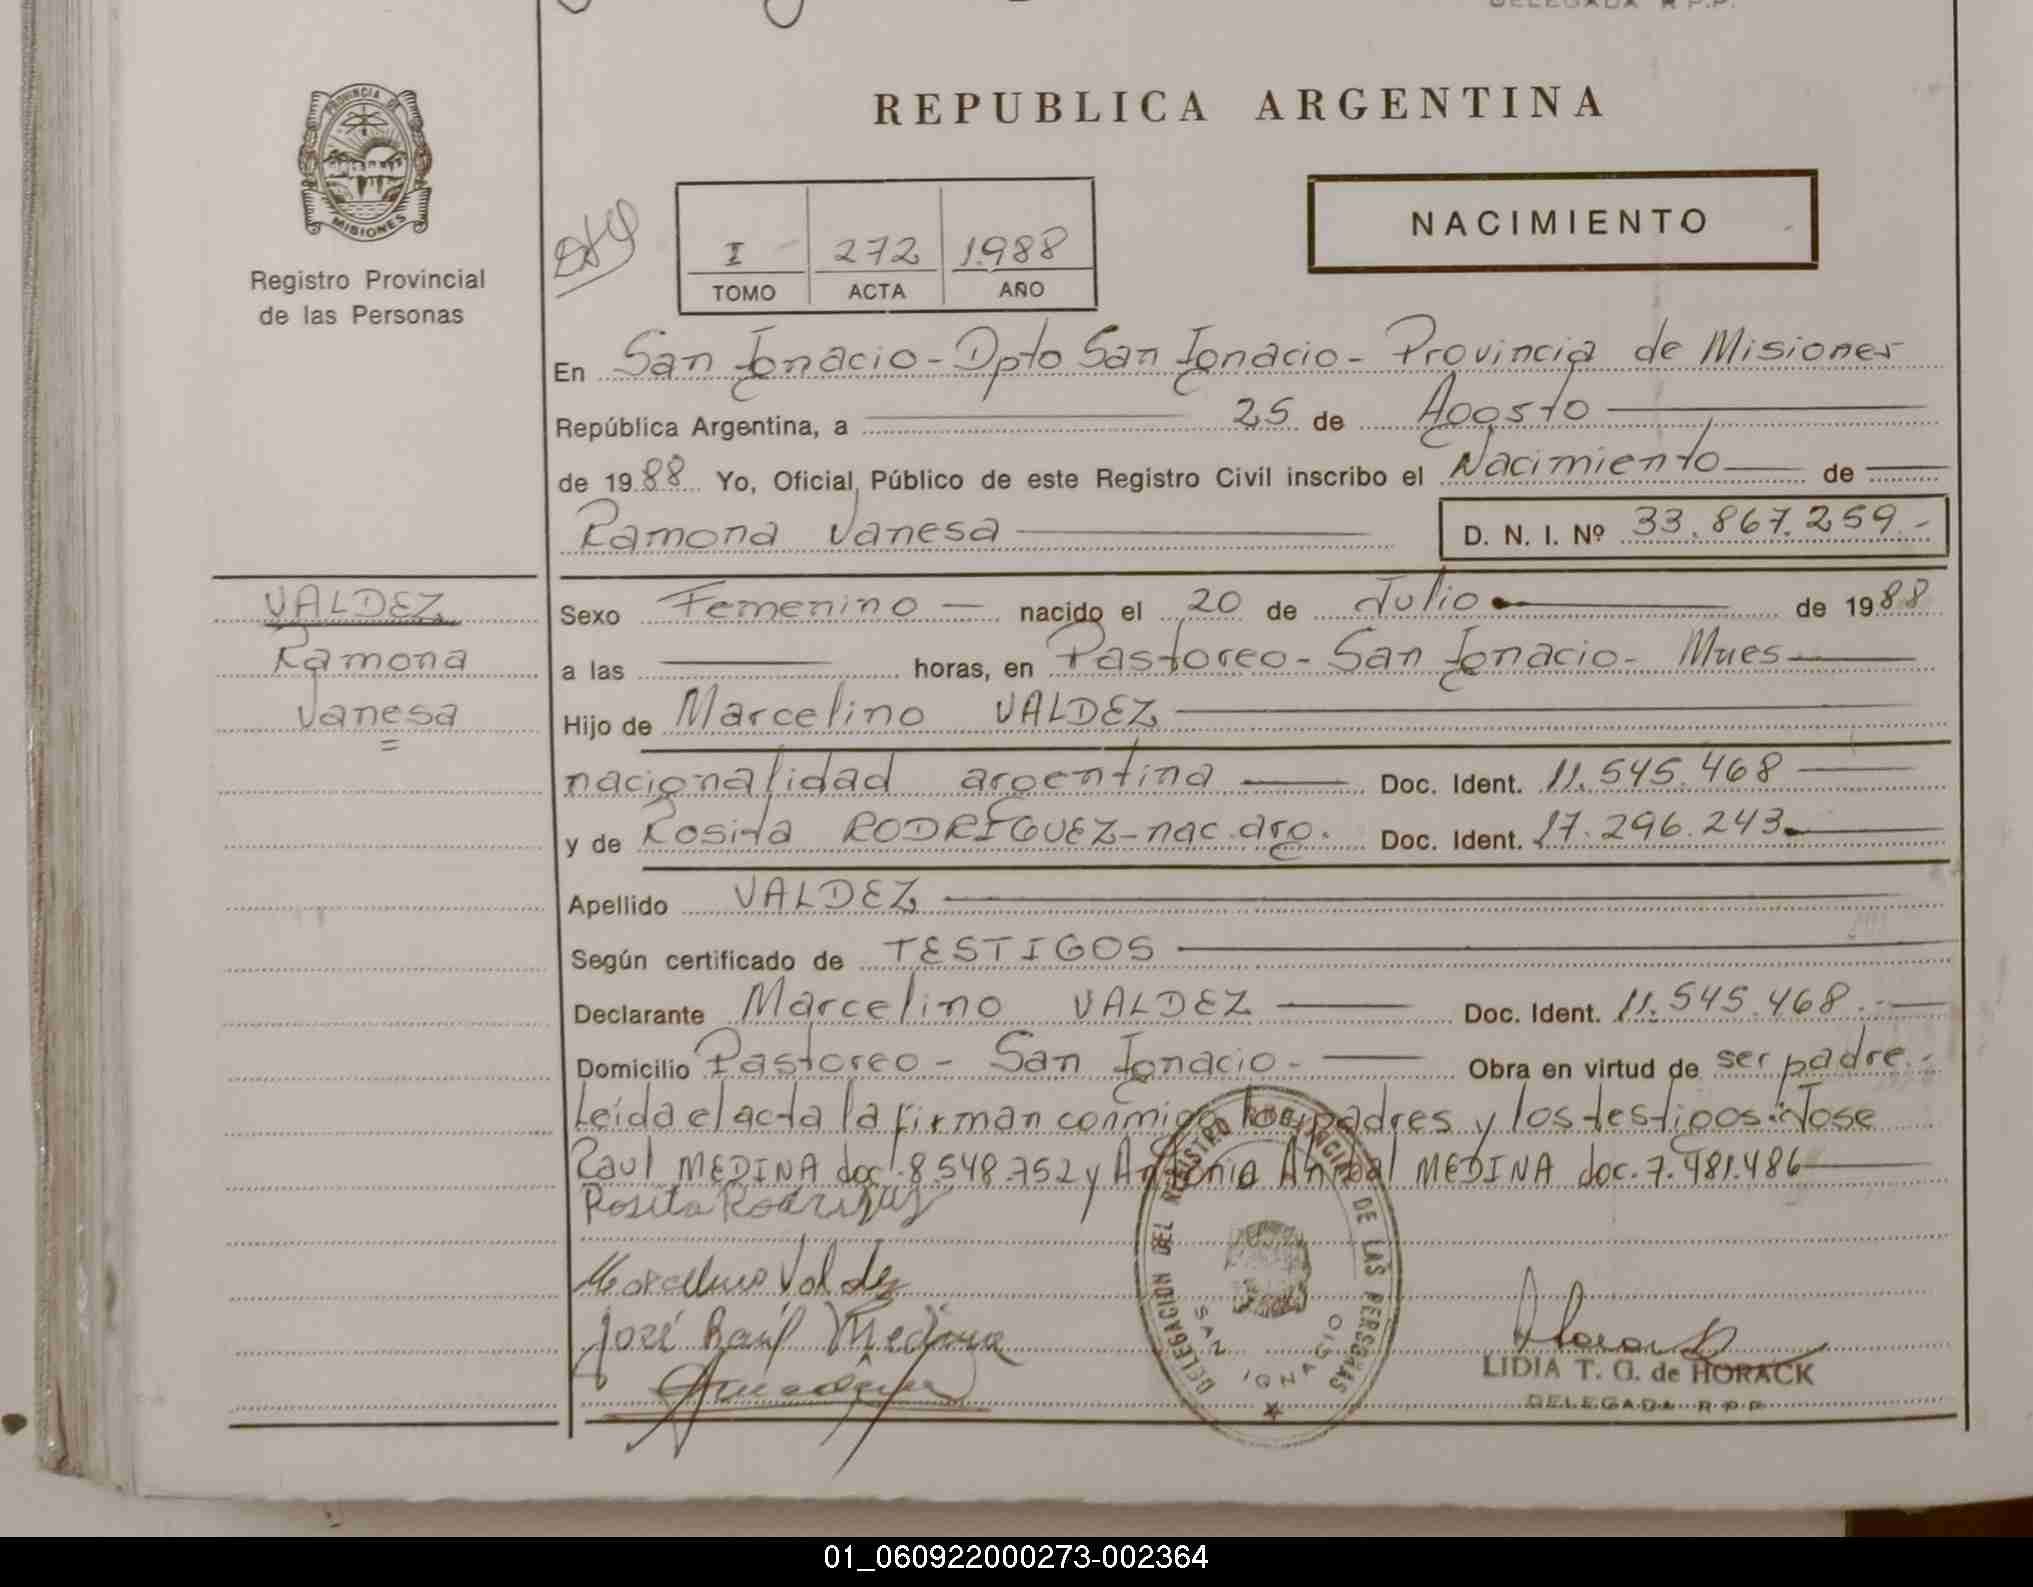 DELEGADA R.P.P.
REPUBLICA ARGENTINA
PROVINCIA DE
MISIONES
Registro Provincial
de las Personas
I 272 1988
TOMO ACTA AÑO
NACIMIENTO
En San Ignacio - Dpto San Ignacio - Provincia de Misiones
República Argentina, a 25 de Agosto
de 1988 Yo, Oficial Público de este Registro Civil inscribo el Nacimiento de
Ramona Vanesa D. N. I. Nº 33.867.259.-
VALDEZ
Ramona
Vanesa
Sexo Femenino — nacido el 20 de Julio de 1988
a las horas, en Pastoreo - San Ignacio - Mnes
Hijo de Marcelino VALDEZ
nacionalidad argentina Doc. Ident. 11.545.468
y de Rosita RODRIGUEZ - nac. arg. Doc. Ident. 17.296.243
Apellido VALDEZ
Según certificado de TESTIGOS
Declarante Marcelino VALDEZ Doc. Ident. 11.545.468.-
Domicilio Pastoreo - San Ignacio - Obra en virtud de ser padre.-
Leída el acta la firman conmigo los padres y los testigos: Jose
Raul MEDINA doc. 8.548.752 y Antonio Anibal MEDINA doc. 7.481.486
Rosita Rodriguez
Marcelino Valdez
José Raúl Medina
DELEGACION DEL REGISTRO PROVINCIAL DE LAS PERSONAS
SAN IGNACIO
LIDIA T. G. de HORACK
DELEGADA R.P.P.
01_060922000273-002364